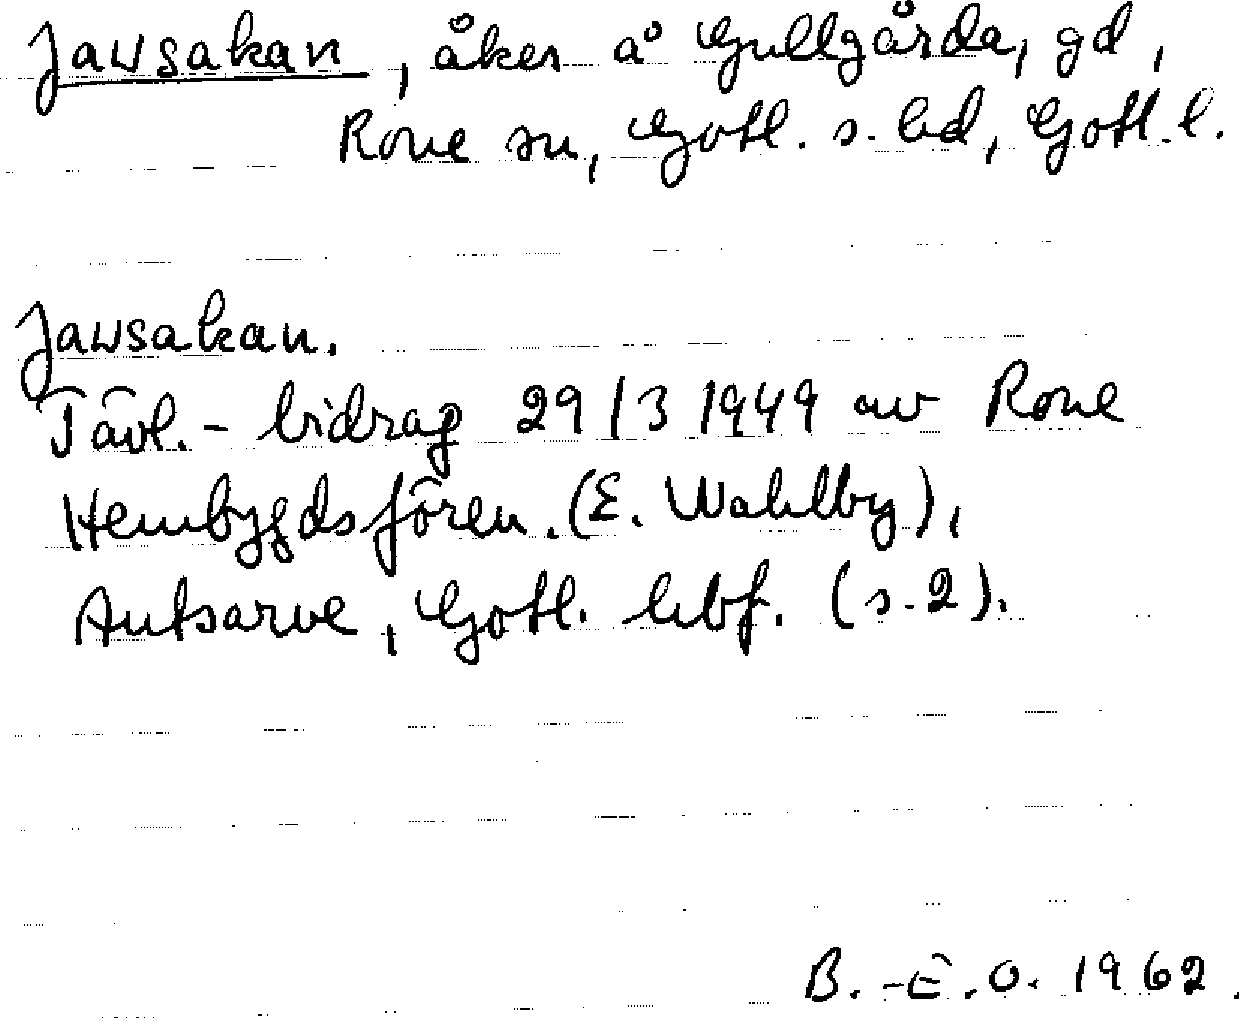 Jausakan, åker å Gullgårda, gd,
Rone sn, Gotl. s. hd, Gotl. l.
Jausakan.
Tävl.- bidrag 29/3 1949 av Rone
Hembygdsfören. (E. Wahlby),
Autsarve, Gotl. hbf. (s. 2).
B.-E.O. 1962.